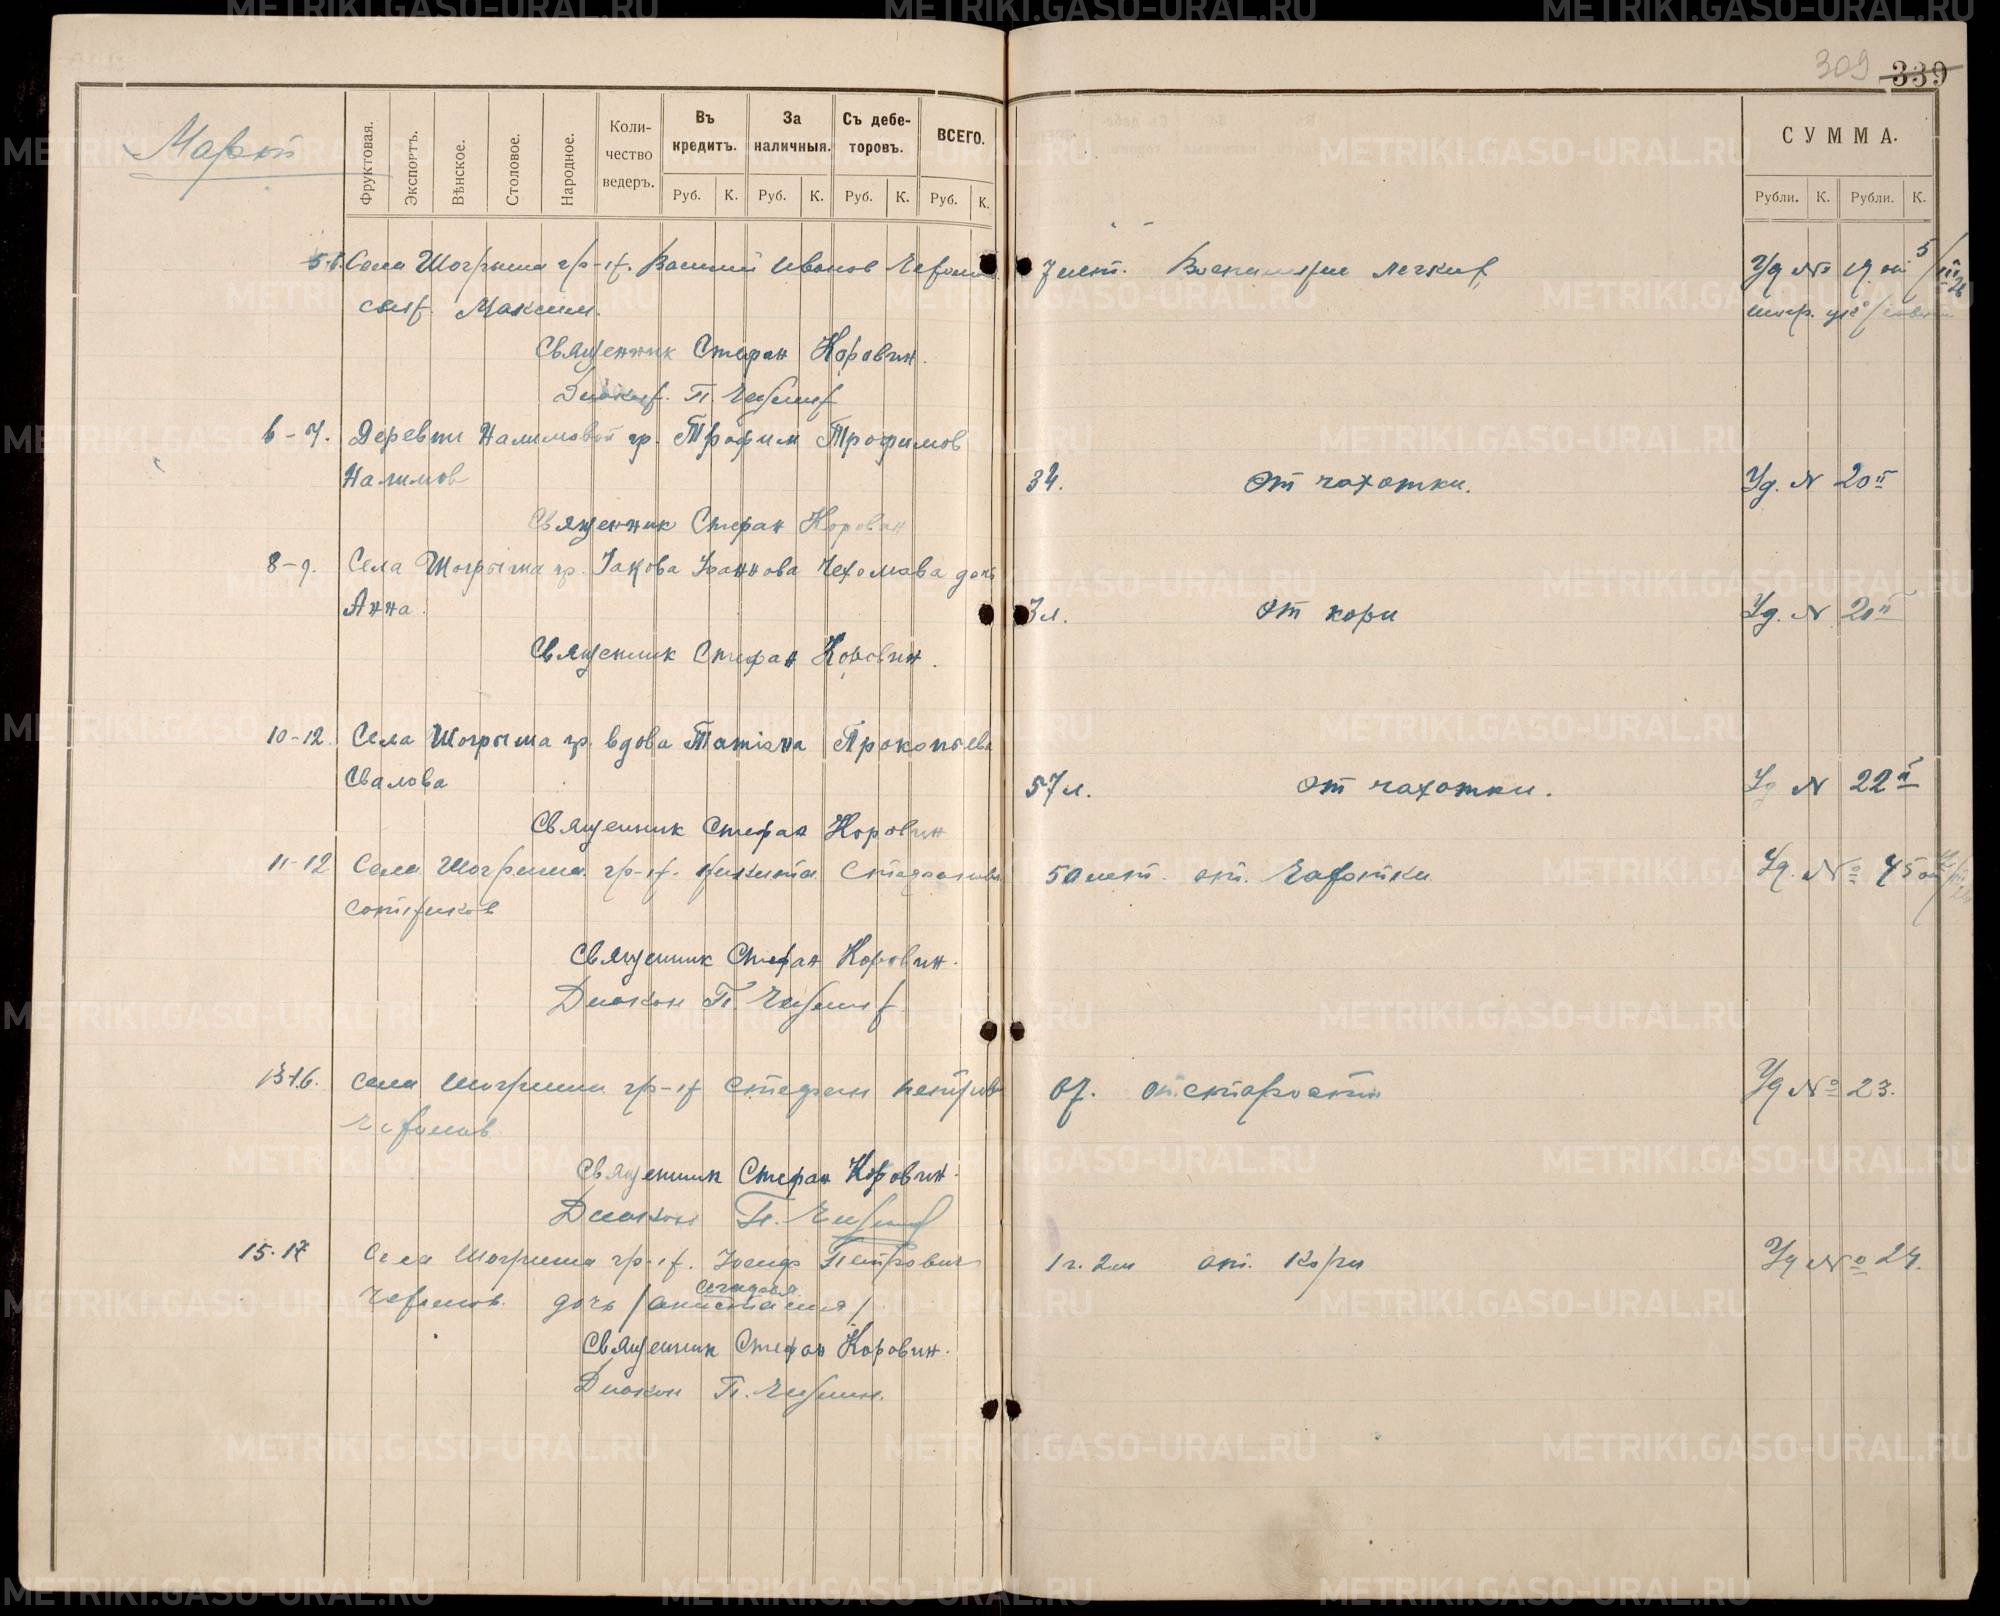 309 339
Март
Фруктовая. Экспортъ. Вѣнское. Столовое. Народное. Количество ведеръ. Въ кредитъ. За наличныя. Съ дебеторовъ. ВСЕГО. СУММА.
Руб. К. Руб. К. Руб. К. Руб. К. Рубли. К. Рубли. К.
Села Шогрыша гр-н. Василий Иванов
7 лет. Воспаление легких Уд № 19 от 5/III 26
сын Максим.
Священник Стефан Коровин.
Диакон П.
6-7. Деревни Налимовой гр. Трофим Трофимов
Налимов
34. От чахотки. Уд. N 20
Священник Стефан Коровин
8-9. Села Шогрыша гр. Иакова Иоаннова Чехомова дочь
Анна.
3 л. От кори Уд. N 20
Священник Стефан Коровин.
10-12. Села Шогрыша гр. вдова Татiана Прокопьева
Свалова
57 л. От чахотки. Уд N 22
Священник Стефан Коровин
11-12 Села Шогрыша гр-н. Никита
50 лет. от. Чахотки Уд. № 45 от
Священник Стефан Коровин.
Диакон П.
Села Шогрыша гр-н Стефан Петров
от старости Уд № 23.
Священник Стефан Коровин.
Диакон П.
15-17 Села Шогрыша гр-н. Иосиф Петрович
1 г. 2 м от. Кори Уд № 24.
дочь
Священник Стефан Коровин.
Диакон П.
METRIKI.GASO-URAL.RU